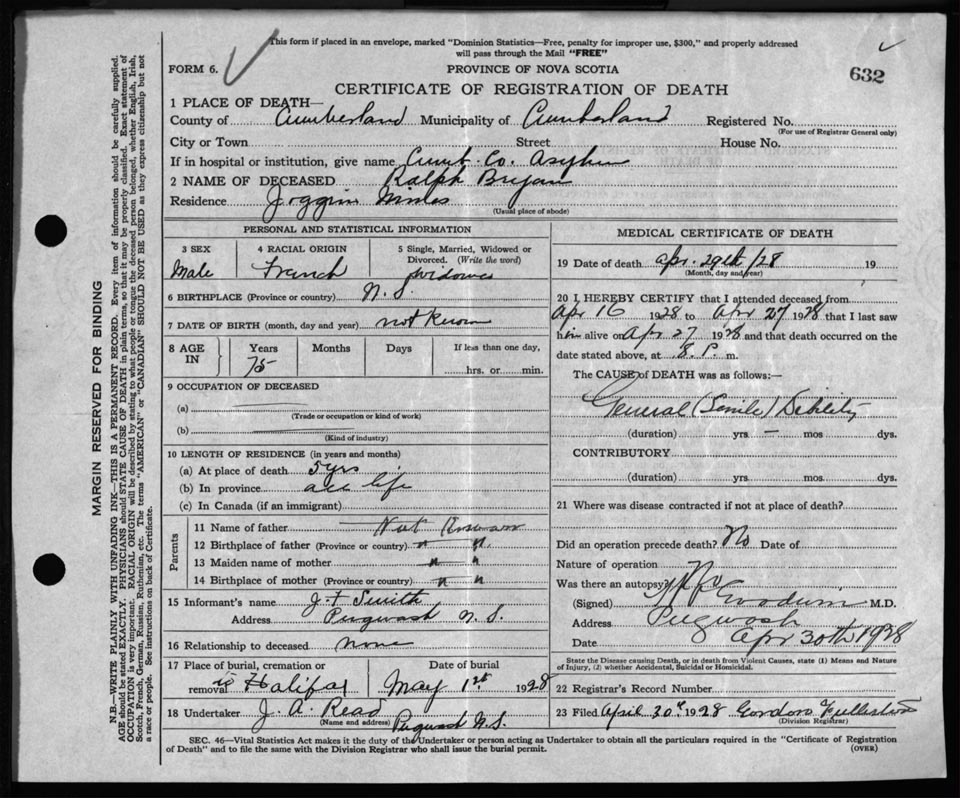 This form if placed in an envelope, marked "Dominion Statistics—Free, penalty for improper use, $300," and properly addressed
will pass through the Mail "FREE"
FORM 6.
PROVINCE OF NOVA SCOTIA
632
CERTIFICATE OF REGISTRATION OF DEATH
1 PLACE OF DEATH—
County of Cumberland Municipality of Cumberland Registered No.
(For use of Registrar General only)
City or Town Street House No.
If in hospital or institution, give name Cumb. Co. Asylum
2 NAME OF DECEASED Ralph Bryan
Residence Joggins Mines
(Usual place of abode)
PERSONAL AND STATISTICAL INFORMATION
3 SEX 4 RACIAL ORIGIN 5 Single, Married, Widowed or
Divorced. (Write the word)
Male French widower
6 BIRTHPLACE (Province or country) N. S.
7 DATE OF BIRTH (month, day and year) not known
8 AGE IN Years Months Days If less than one day,
75 hrs. or min.
9 OCCUPATION OF DECEASED
(a)
(Trade or occupation or kind of work)
(b)
(Kind of industry)
10 LENGTH OF RESIDENCE (in years and months)
(a) At place of death 5 yrs
(b) In province all life
(c) In Canada (if an immigrant)
Parents
11 Name of father Not Known
12 Birthplace of father (Province or country) " "
13 Maiden name of mother " "
14 Birthplace of mother (Province or country) " "
15 Informant's name J. F Smith
Address Pugwash N. S.
16 Relationship to deceased none
17 Place of burial, cremation or Date of burial
removal to Halifax May 1st 1928
18 Undertaker J. A. Read
(Name and address) Pugwash N.S.
MEDICAL CERTIFICATE OF DEATH
19 Date of death Apr. 29th /28 19
(Month, day and year)
20 I HEREBY CERTIFY that I attended deceased from
Apr 16 1928 to Apr 27 1928 that I last saw
him alive on Apr 27 1928 and that death occurred on the
date stated above, at 8. P. m.
The CAUSE of DEATH was as follows:—
General (Senile) Debility
(duration) yrs — mos dys.
CONTRIBUTORY
(duration) yrs. mos. dys.
21 Where was disease contracted if not at place of death?
Did an operation precede death? No Date of
Nature of operation
Was there an autopsy?
(Signed) M.D.
Address Pugwash
Date Apr 30th 1928
State the Disease causing Death, or in death from Violent Causes, state (1) Means and Nature
of Injury, (2) whether Accidental, Suicidal or Homicidal.
22 Registrar's Record Number
23 Filed April 30th 1928 Gordon
(Division Registrar)
SEC. 46—Vital Statistics Act makes it the duty of the Undertaker or person acting as Undertaker to obtain all the particulars required in the "Certificate of Registration
of Death" and to file the same with the Division Registrar who shall issue the burial permit.
(OVER)
MARGIN RESERVED FOR BINDING
N.B.—WRITE PLAINLY WITH UNFADING INK—THIS IS A PERMANENT RECORD. Every item of information should be carefully supplied.
AGE should be stated EXACTLY. PHYSICIANS should STATE CAUSE OF DEATH in plain terms, so that it may be properly classified. Exact statement of
OCCUPATION is very important. RACIAL ORIGIN will be described by stating to what people or tongue the deceased person belonged, whether English, Irish,
Scotch, French, German, Russian, Ruthenian, etc. The terms "AMERICAN" or "CANADIAN" SHOULD NOT BE USED as they express citizenship but not
a race or people. See instructions on back of Certificate.